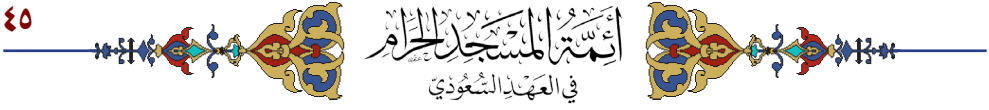 ٤٥
أَئِمَّةُ المَسْجِدِ الحَرَامِ
في العَهْدِ السُّعُودِيِّ